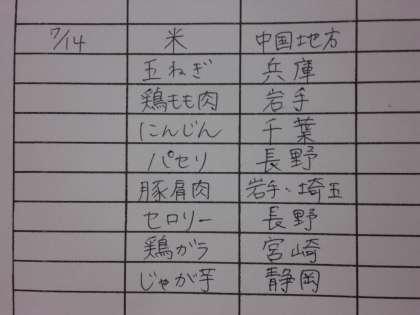 7/14 米 中国地方
玉ねぎ 兵庫
鶏もも肉 岩手
にんじん 千葉
パセリ 長野
豚肩肉 岩手、埼玉
セロリー 長野
鶏ガラ 宮崎
じゃが芋 静岡